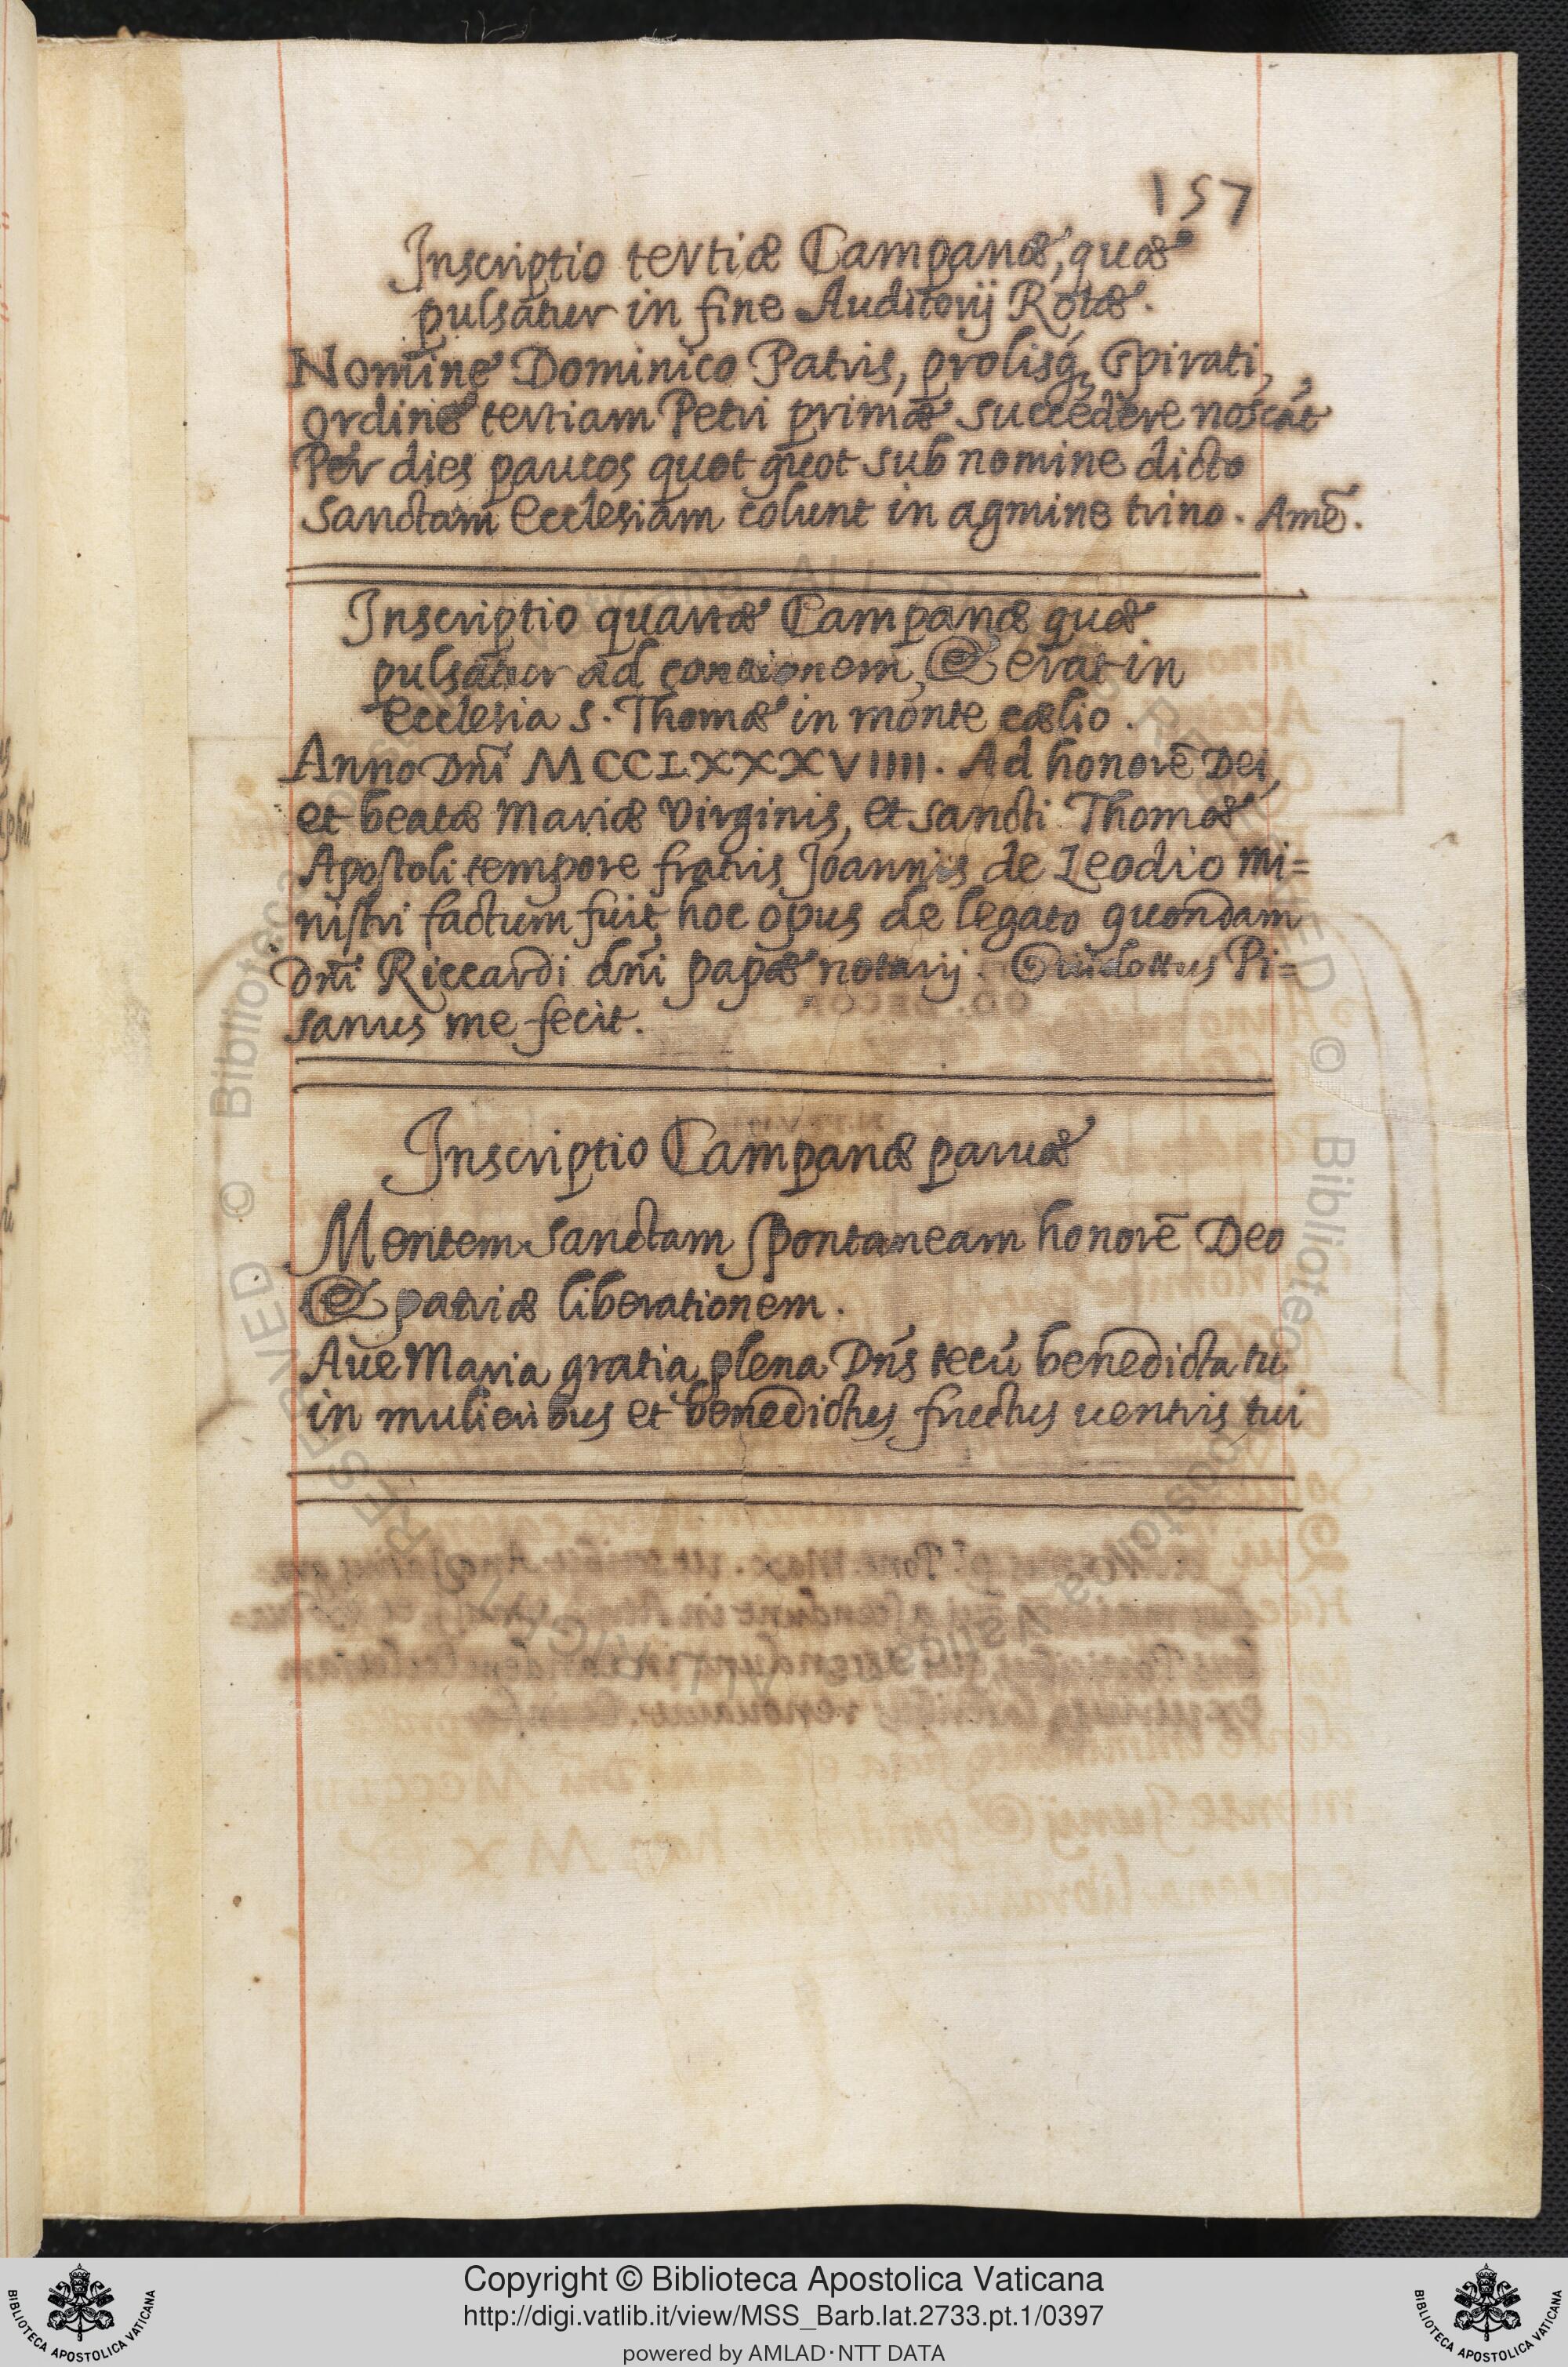 157
Inscriptio tertiæ Campanæ, quæ
pulsatur in fine Auditorij Rotæ.
Nomine Dominico Patris, prolisq; Spirati,
ordine tertiam Petri primæ succedere noscāt
Per dies paucos quot quot sub nomine dicto
Sanctam Ecclesiam colunt in agmine trino. Amē.
Inscriptio quartæ Campanæ quæ
pulsatur ad concionem, & erat in
Ecclesia S. Thomæ in monte cælio.
Anno Dn̄i MCCLXXXVIIII. Ad honorē Dei,
et beatæ Mariæ Virginis, et sancti Thomæ
Apostoli tempore fratris Joannis de Leodio mi=
nistri factum fuit hoc opus de legato quondam
Dn̄i Riccardi dn̄i papæ notarij. Guidottus Pi=
sanus me fecit.
Inscriptio Campanæ paruæ
Mentem Sanctam spontaneam honorē Deo
& patriæ liberationem.
Aue Maria gratia plena Dn̄s tecū benedicta tu
in mulieribus et benedictus fructus uentris tui
Copyright © Biblioteca Apostolica Vaticana
http://digi.vatlib.it/view/MSS_Barb.lat.2733.pt.1/0397
powered by AMLAD·NTT DATA
BIBLIOTECA APOSTOLICA VATICANA
BIBLIOTECA APOSTOLICA VATICANA